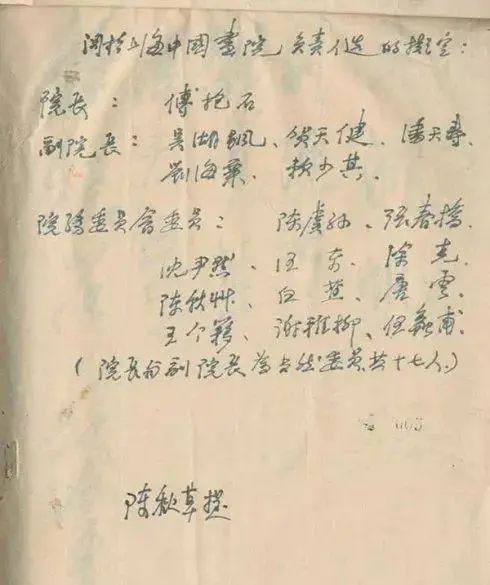 関於上海中國畫院負责人选的擬定:
院长: 傅抱石
副院长: 吴湖帆、贺天健、潘天寿、
劉海粟、赖少其.
院務委员會委员: 陈虞孙、张春橋、
沈尹默、汪东、涂克、
陈秋草、白蕉、唐雲、
王个簃、谢稚柳、伍蠡甫、
(院长与副院长为当然委员共十七人.)
陈秋草拟